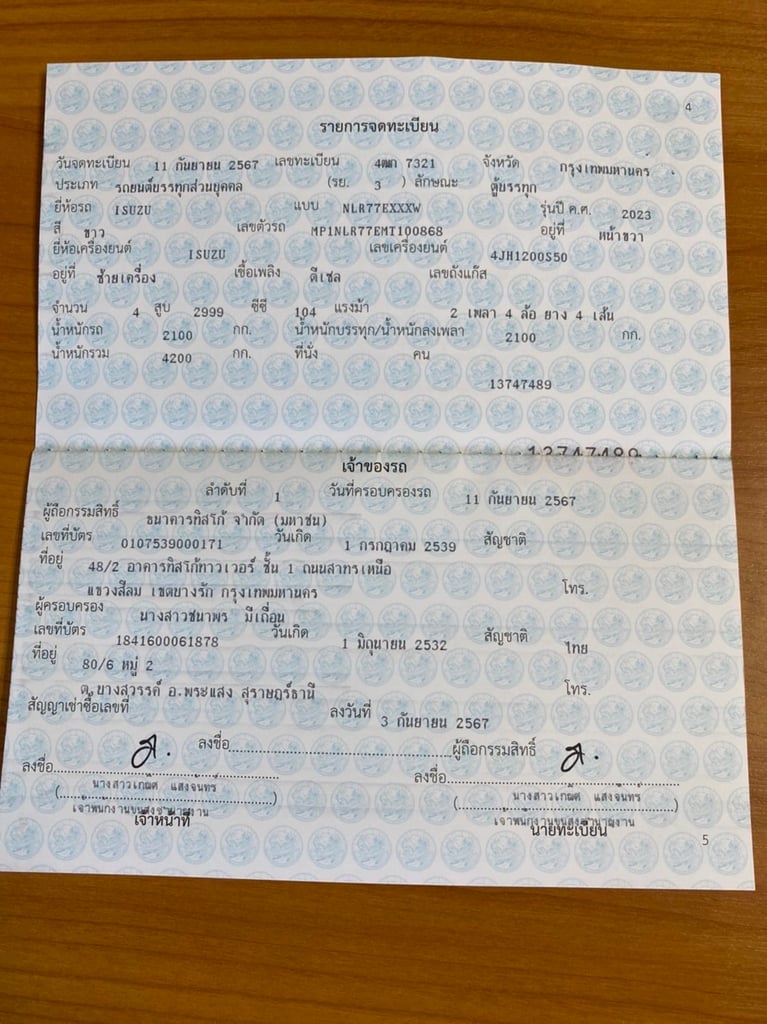 4
รายการจดทะเบียน
วันจดทะเบียน 11 กันยายน 2567 เลขทะเบียน 4ฒก 7321 จังหวัด กรุงเทพมหานคร
ประเภท รถยนต์บรรทุกส่วนบุคคล (รย. 3 ) ลักษณะ ตู้บรรทุก
ยี่ห้อรถ ISUZU แบบ NLR77EXXXW รุ่นปี ค.ศ. 2023
สี ขาว เลขตัวรถ MP1NLR77EMT100868 อยู่ที่ หน้าขวา
ยี่ห้อเครื่องยนต์ ISUZU เลขเครื่องยนต์ 4JH1200S50
อยู่ที่ ซ้ายเครื่อง เชื้อเพลิง ดีเซล เลขถังแก๊ส
จำนวน 4 สูบ 2999 ซีซี 104 แรงม้า 2 เพลา 4 ล้อ ยาง 4 เส้น
น้ำหนักรถ 2100 กก. น้ำหนักบรรทุก/น้ำหนักลงเพลา 2100 กก.
น้ำหนักรวม 4200 กก. ที่นั่ง คน
13747489
13747489
เจ้าของรถ
ลำดับที่ 1 วันที่ครอบครองรถ 11 กันยายน 2567
ผู้ถือกรรมสิทธิ์ ธนาคารทิสโก้ จำกัด (มหาชน)
เลขที่บัตร 0107539000171 วันเกิด 1 กรกฎาคม 2539 สัญชาติ
ที่อยู่ 48/2 อาคารทิสโก้ทาวเวอร์ ชั้น 1 ถนนสาทรเหนือ
แขวงสีลม เขตบางรัก กรุงเทพมหานคร โทร.
ผู้ครอบครอง นางสาวชนาพร มีเถื่อน
เลขที่บัตร 1841600061878 วันเกิด 1 มิถุนายน 2532 สัญชาติ ไทย
ที่อยู่ 80/6 หมู่ 2
ต.บางสวรรค์ อ.พระแสง สุราษฎร์ธานี โทร.
สัญญาเช่าซื้อเลขที่ ลงวันที่ 3 กันยายน 2567
ลงชื่อ ผู้ถือกรรมสิทธิ์
ลงชื่อ ลงชื่อ
(นางสาวเกณิศ แสงจันทร์) (นางสาวเกณิศ แสงจันทร์)
เจ้าพนักงานขนส่งชำนาญงาน เจ้าพนักงานขนส่งชำนาญงาน
เจ้าหน้าที่ นายทะเบียน
5